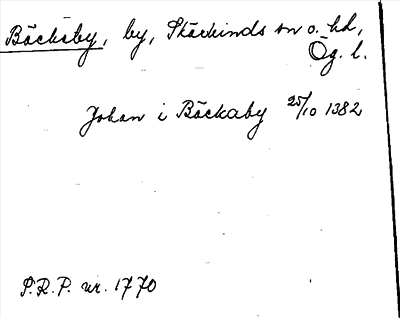 Bäckaby, by, Skärkinds sn o. hd,
Ög. l.
Johan i Bäckaby 25/10 1382
P.R.P. nr. 1770